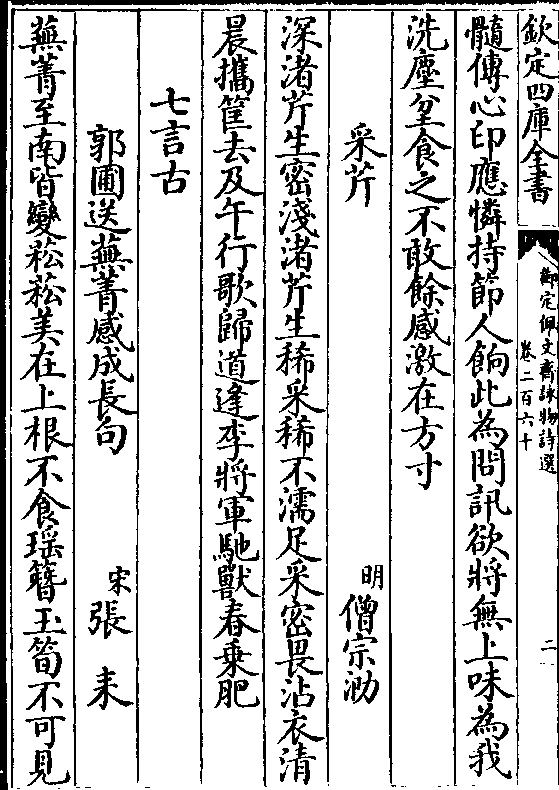 欽定四庫全書
御定佩文齋詠物詩選
卷二百六十
二
髓傳心印應憐持節人餉此為問訊欲將無上味為我
洗塵坌食之不敢餘感激在方寸
采芹
明
僧宗泐
深渚芹生密淺渚芹生稀采稀不濡足采密畏沾衣清
晨攜筐去及午行歌歸道逢李將軍馳獸春乗肥
七言古
郭圃送蕪菁感成長句
宋
張耒
蕪菁至南皆變菘菘美在上根不食瑶簪玉筍不可見